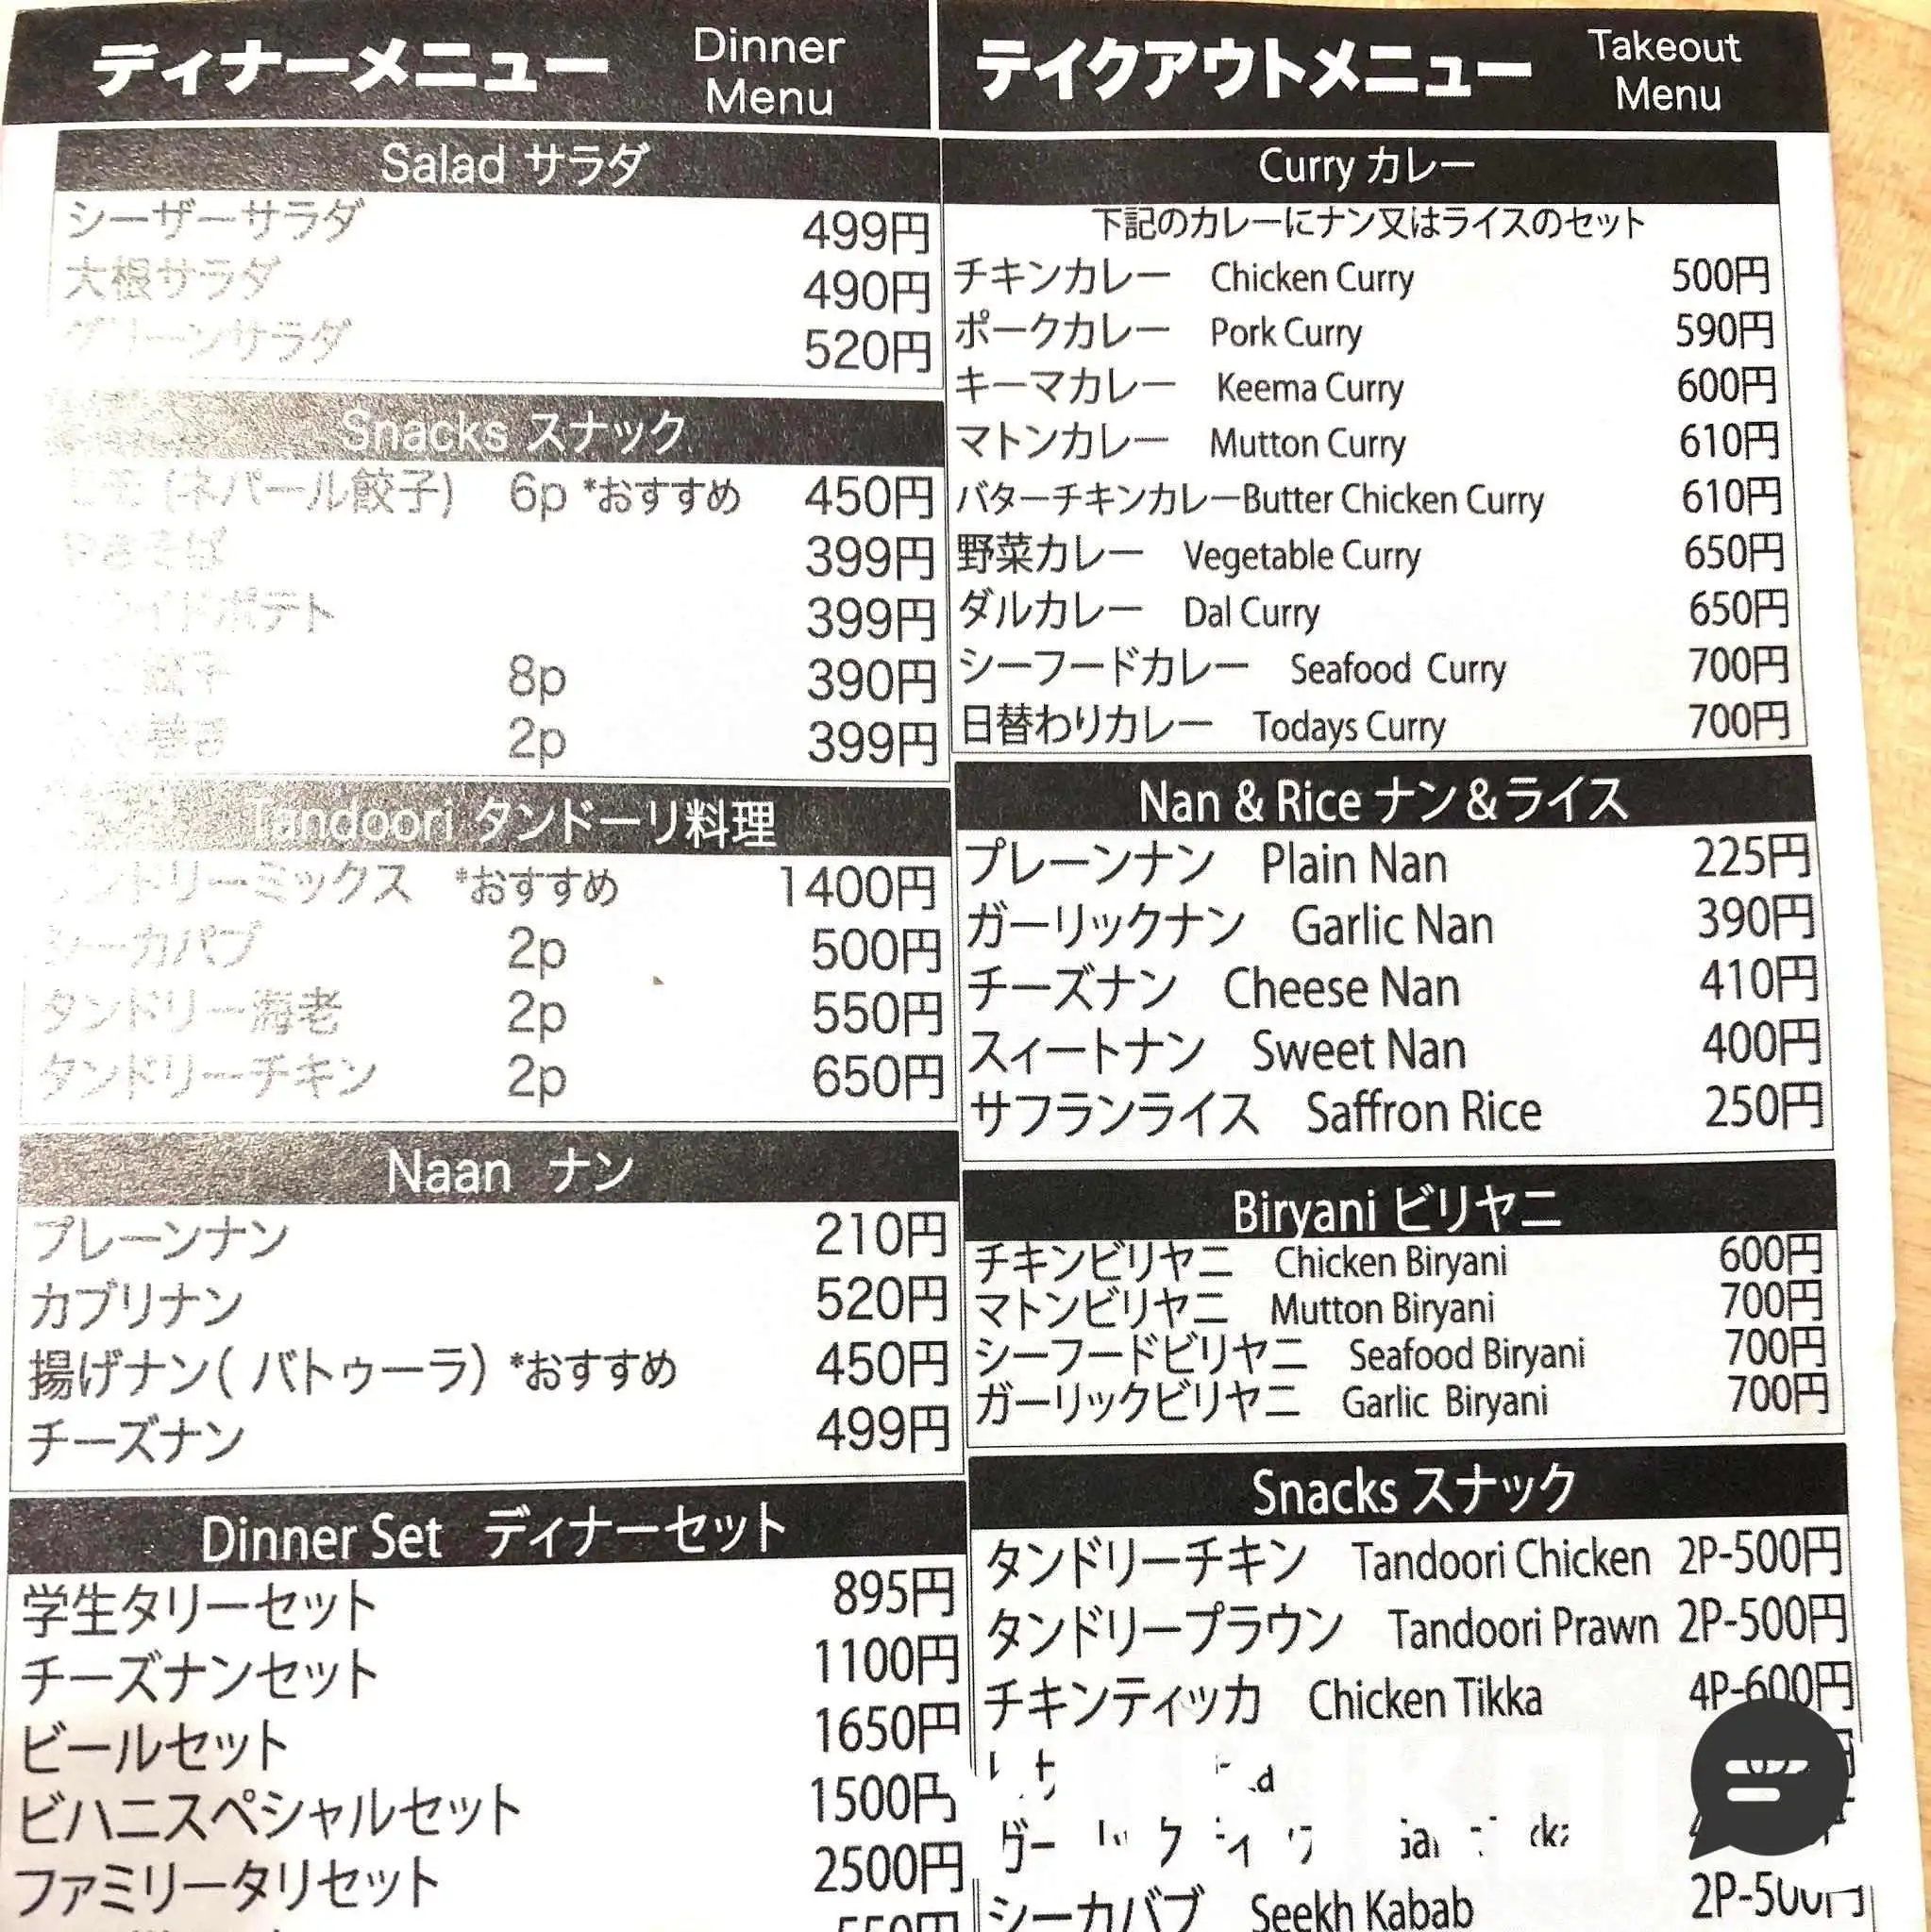 ディナーメニュー Dinner Menu
Salad サラダ
シーザーサラダ 499円
大根サラダ 490円
グリーンサラダ 520円
Snacks スナック
(ネパール餃子) 6p *おすすめ 450円
やきそば 399円
ポテト 399円
餃子 8p 390円
巻き 2p 399円
Tandoori タンドーリ料理
タンドリーミックス *おすすめ 1400円
シーカバブ 2p 500円
タンドリー海老 2p 550円
タンドリーチキン 2p 650円
Naan ナン
プレーンナン 210円
カブリナン 520円
揚げナン(バトゥーラ) *おすすめ 450円
チーズナン 499円
Dinner Set ディナーセット
学生タリーセット 895円
チーズナンセット 1100円
ビールセット 1650円
ビハニスペシャルセット 1500円
ファミリータリセット 2500円
550円
テイクアウトメニュー Takeout Menu
Curry カレー
下記のカレーにナン又はライスのセット
チキンカレー Chicken Curry 500円
ポークカレー Pork Curry 590円
キーマカレー Keema Curry 600円
マトンカレー Mutton Curry 610円
バターチキンカレーButter Chicken Curry 610円
野菜カレー Vegetable Curry 650円
ダルカレー Dal Curry 650円
シーフードカレー Seafood Curry 700円
日替わりカレー Todays Curry 700円
Nan & Rice ナン&ライス
プレーンナン Plain Nan 225円
ガーリックナン Garlic Nan 390円
チーズナン Cheese Nan 410円
スィートナン Sweet Nan 400円
サフランライス Saffron Rice 250円
Biryani ビリヤニ
チキンビリヤニ Chicken Biryani 600円
マトンビリヤニ Mutton Biryani 700円
シーフードビリヤニ Seafood Biryani 700円
ガーリックビリヤニ Garlic Biryani 700円
Snacks スナック
タンドリーチキン Tandoori Chicken 2P-500円
タンドリープラウン Tandoori Prawn 2P-500円
チキンティッカ Chicken Tikka 4P-600円
シーカバブ Seekh Kabab 2P-500円